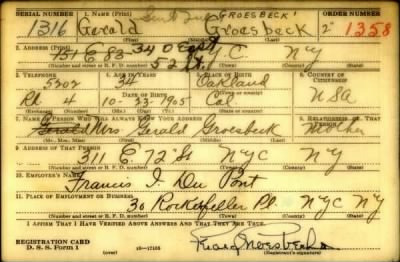 SERIAL NUMBER 1. NAME (Print) GROESBECK ORDER NUMBER
1316 Gerald Groesbeck 1358
(First) (Middle) (Last)
2. ADDRESS (Print) 34 0 East
151 E 83 52 St. N.C. NY
(Number and street or R. F. D. number) (Town) (County) (State)
3. TELEPHONE 4. AGE IN YEARS 5. PLACE OF BIRTH 6. COUNTRY OF CITIZENSHIP
5202 34 Oakland
DATE OF BIRTH (Town or county)
4 10-23-1905 Cal USA
(Exchange) (Number) (Mo.) (Day) (Yr.) (State or country)
7. NAME OF PERSON WHO WILL ALWAYS KNOW YOUR ADDRESS 8. RELATIONSHIP OF THAT PERSON
Gerald Mrs. Gerald Groesbeck Mother
(Mr., Mrs., Miss) (First) (Middle) (Last)
9. ADDRESS OF THAT PERSON
311 E. 72nd St NYC NY
(Number and street or R. F. D. number) (Town) (County) (State)
10. EMPLOYER'S NAME
Francis I. Du Pont
11. PLACE OF EMPLOYMENT OR BUSINESS
30 Rockefeller Pl. NYC NY
(Number and street or R. F. D. number) (Town) (County) (State)
I AFFIRM THAT I HAVE VERIFIED ABOVE ANSWERS AND THAT THEY ARE TRUE.
REGISTRATION CARD
D. S. S. Form 1 16-17105 (Registrant's signature)